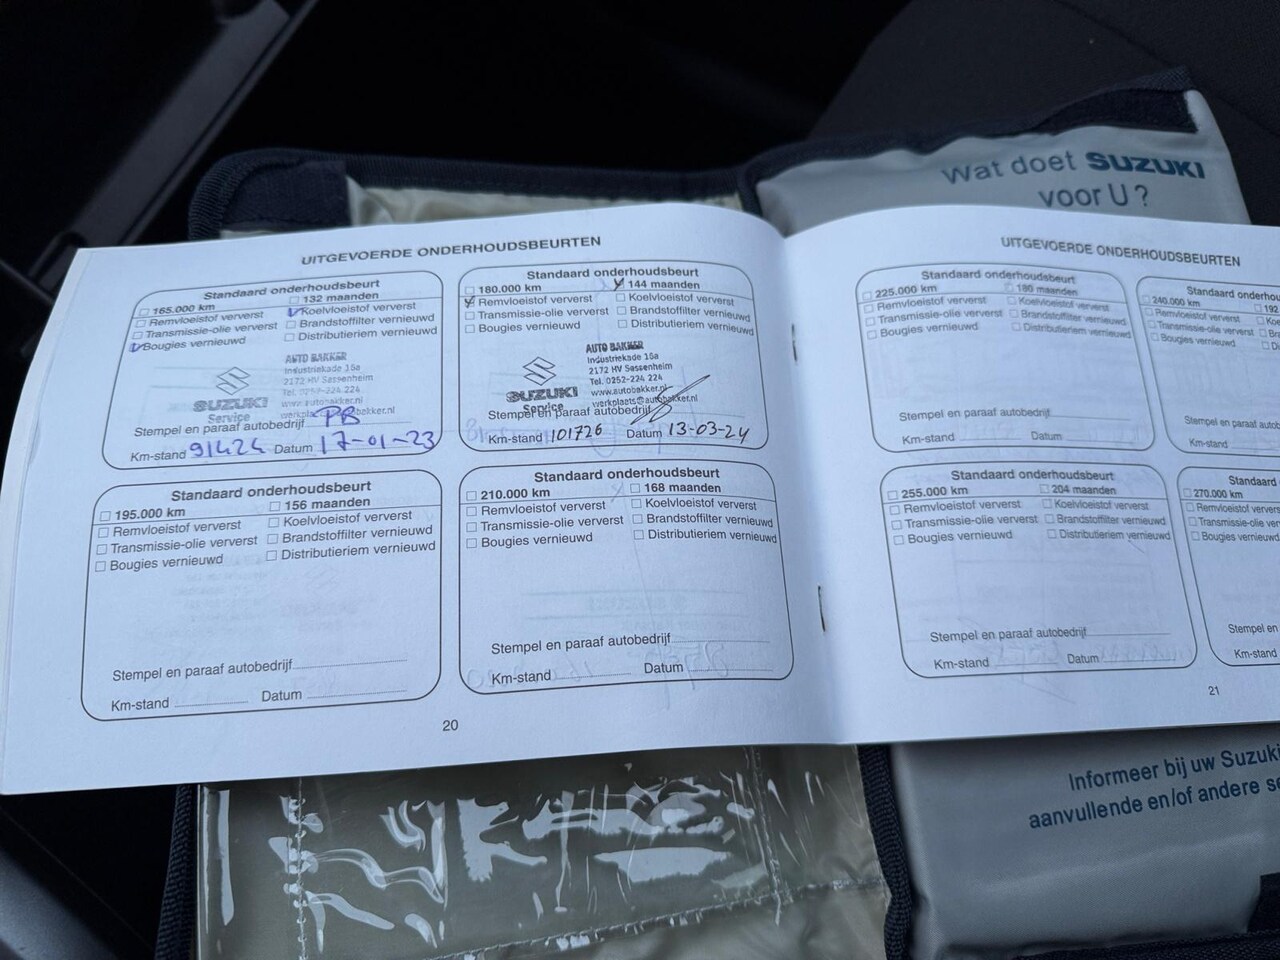 Wat doet SUZUKI
voor U ?
UITGEVOERDE ONDERHOUDSBEURTEN
Standaard onderhoudsbeurt
165.000 km 132 maanden
Remvloeistof ververst Koelvloeistof ververst
Transmissie-olie ververst Brandstoffilter vernieuwd
Bougies vernieuwd Distributieriem vernieuwd
AUTO BAKKER
Industriekade 16a
2172 HV Sassenheim
Tel. 0252-224 224
www.autobakker.nl
SUZUKI
Service
Stempel en paraaf autobedrijf PB
Km-stand 91424 Datum 17-01-23
Standaard onderhoudsbeurt
180.000 km 144 maanden
Remvloeistof ververst Koelvloeistof ververst
Transmissie-olie ververst Brandstoffilter vernieuwd
Bougies vernieuwd Distributieriem vernieuwd
AUTO BAKKER
Industriekade 16a
2172 HV Sassenheim
Tel. 0252-224 224
www.autobakker.nl
werkplaats@autobakker.nl
SUZUKI
Service
Stempel en paraaf autobedrijf
Km-stand 101726 Datum 13-03-24
Standaard onderhoudsbeurt
195.000 km 156 maanden
Remvloeistof ververst Koelvloeistof ververst
Transmissie-olie ververst Brandstoffilter vernieuwd
Bougies vernieuwd Distributieriem vernieuwd
Stempel en paraaf autobedrijf
Km-stand Datum
Standaard onderhoudsbeurt
210.000 km 168 maanden
Remvloeistof ververst Koelvloeistof ververst
Transmissie-olie ververst Brandstoffilter vernieuwd
Bougies vernieuwd Distributieriem vernieuwd
Stempel en paraaf autobedrijf
Km-stand Datum
20
UITGEVOERDE ONDERHOUDSBEURTEN
Standaard onderhoudsbeurt
225.000 km 180 maanden
Remvloeistof ververst Koelvloeistof ververst
Transmissie-olie ververst Brandstoffilter vernieuwd
Bougies vernieuwd Distributieriem vernieuwd
Stempel en paraaf autobedrijf
Km-stand Datum
Standaard
240.000 km 192
Remvloeistof ververst
Transmissie-olie ververst
Bougies vernieuwd
Stempel en paraaf
Km-stand
Standaard onderhoudsbeurt
255.000 km 204 maanden
Remvloeistof ververst Koelvloeistof ververst
Transmissie-olie ververst Brandstoffilter vernieuwd
Bougies vernieuwd Distributieriem vernieuwd
Stempel en paraaf autobedrijf
Km-stand Datum
Standaard
270.000 km
Remvloeistof
Transmissie-olie
Bougies vernieuwd
Stempel en
Km-stand
21
Informeer bij uw Suzuki
aanvullende en/of andere